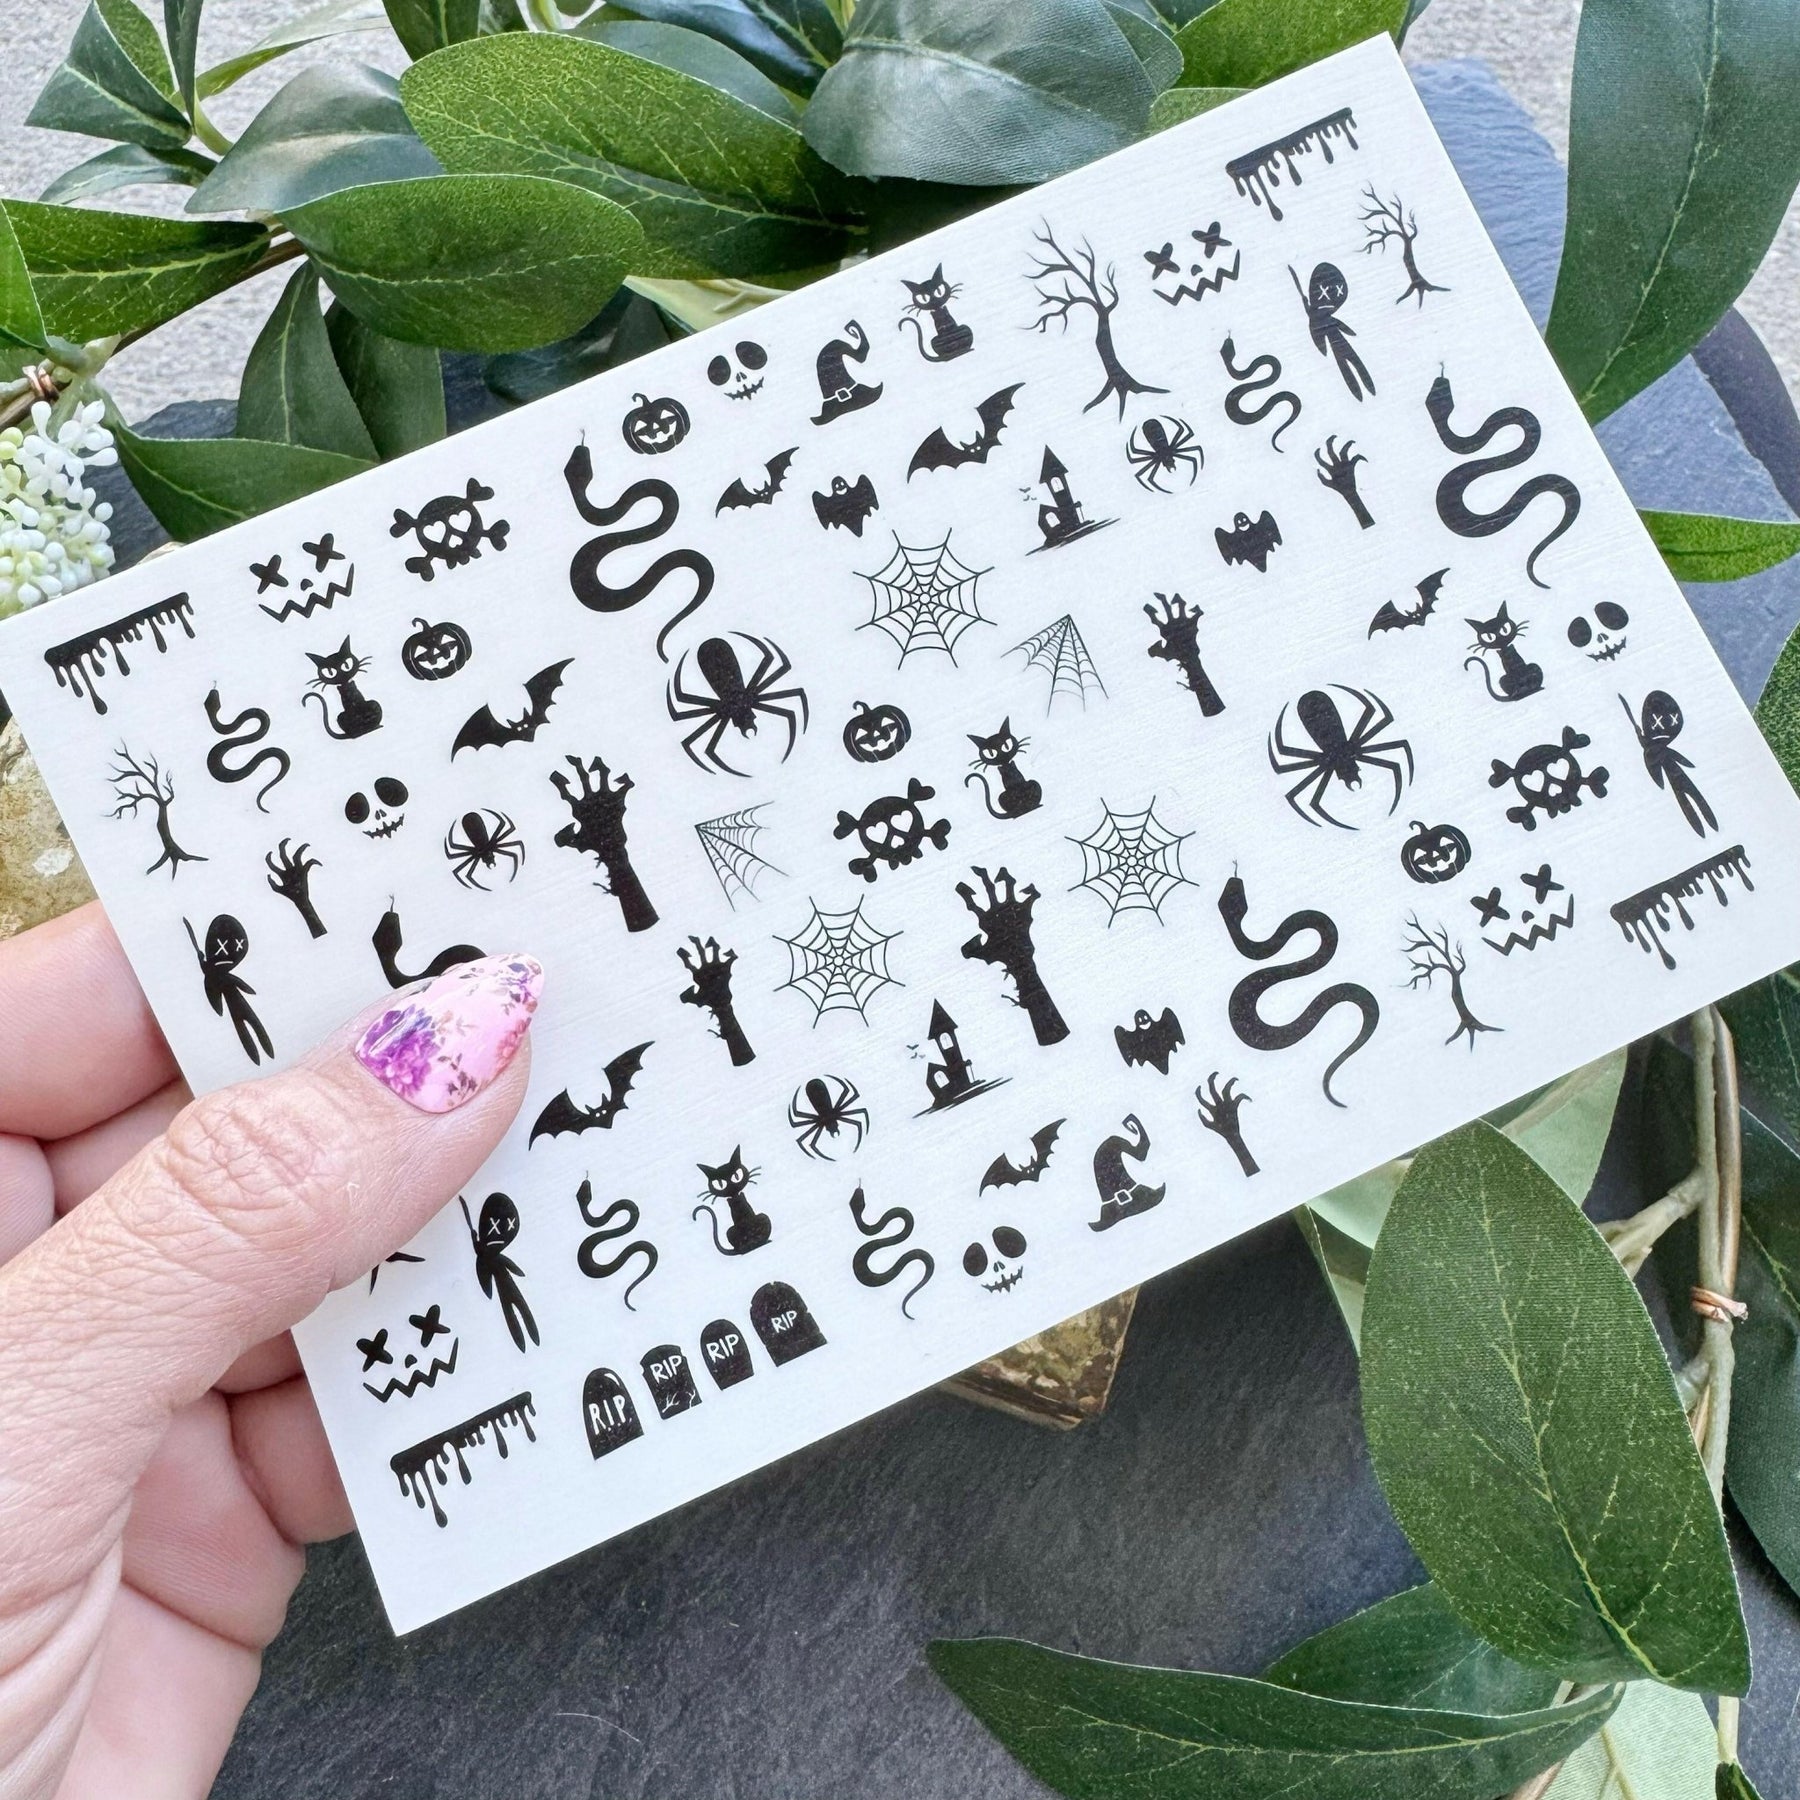 R.I.P
RIP
RIP
RIP